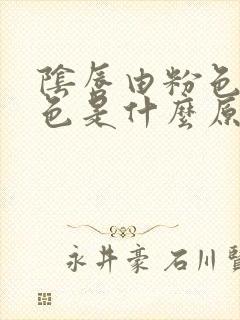 陰唇由粉色
色是什麼原
永井豪 石川賢